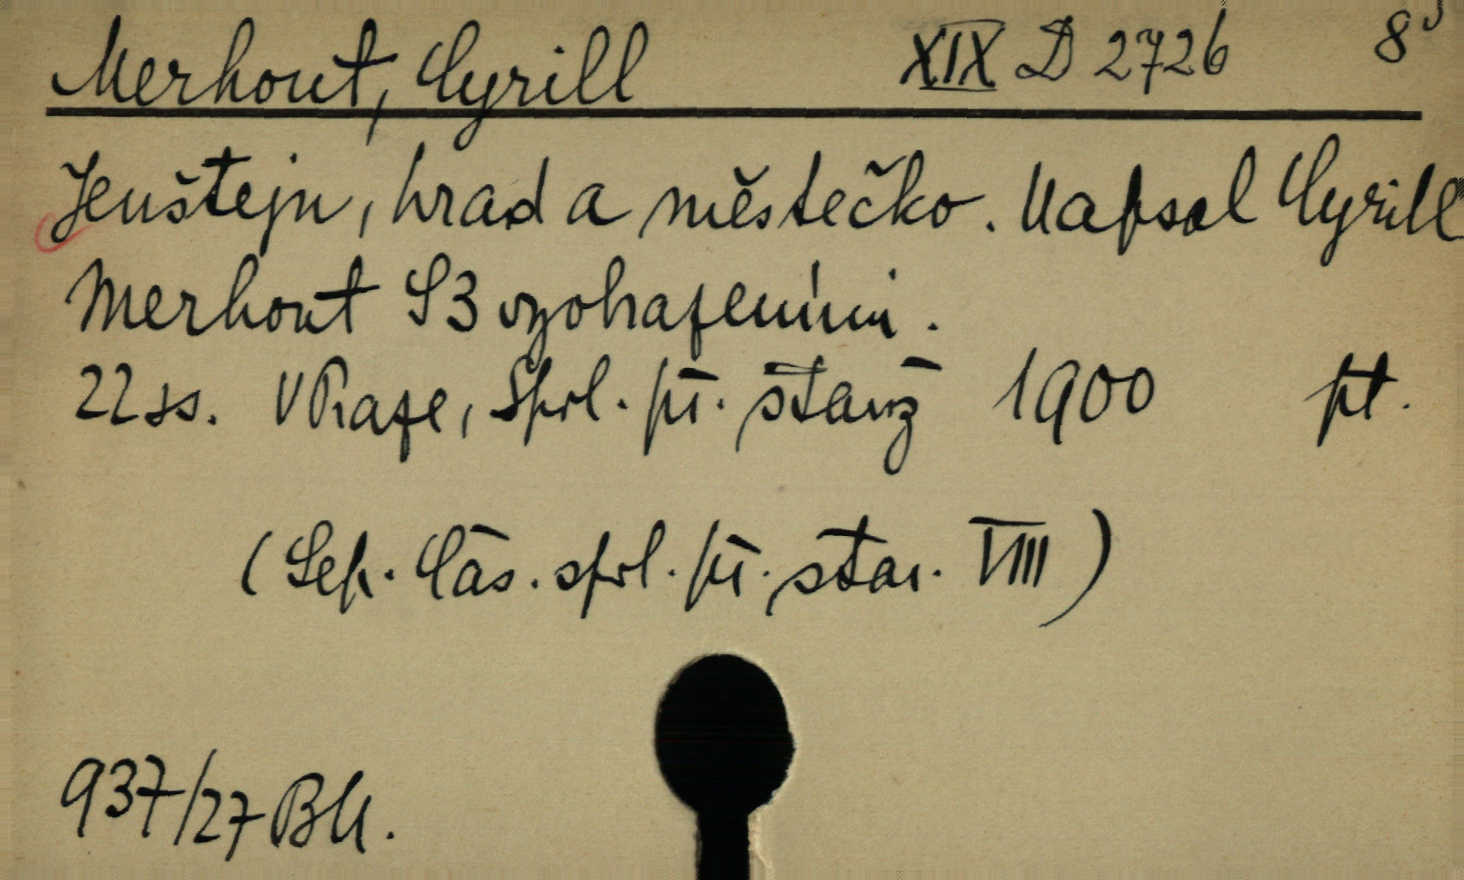 Merhout, Cyrill XIX D 2726 8°
Jenštejn, hrad a městečko. Napsal Cyrill
Merhout S 3 vyobrazeními.
22 ss. V Praze, Spol. př. starož 1900 př.
(Sep. Čas. spol. př. star. VIII)
937/27 BU.